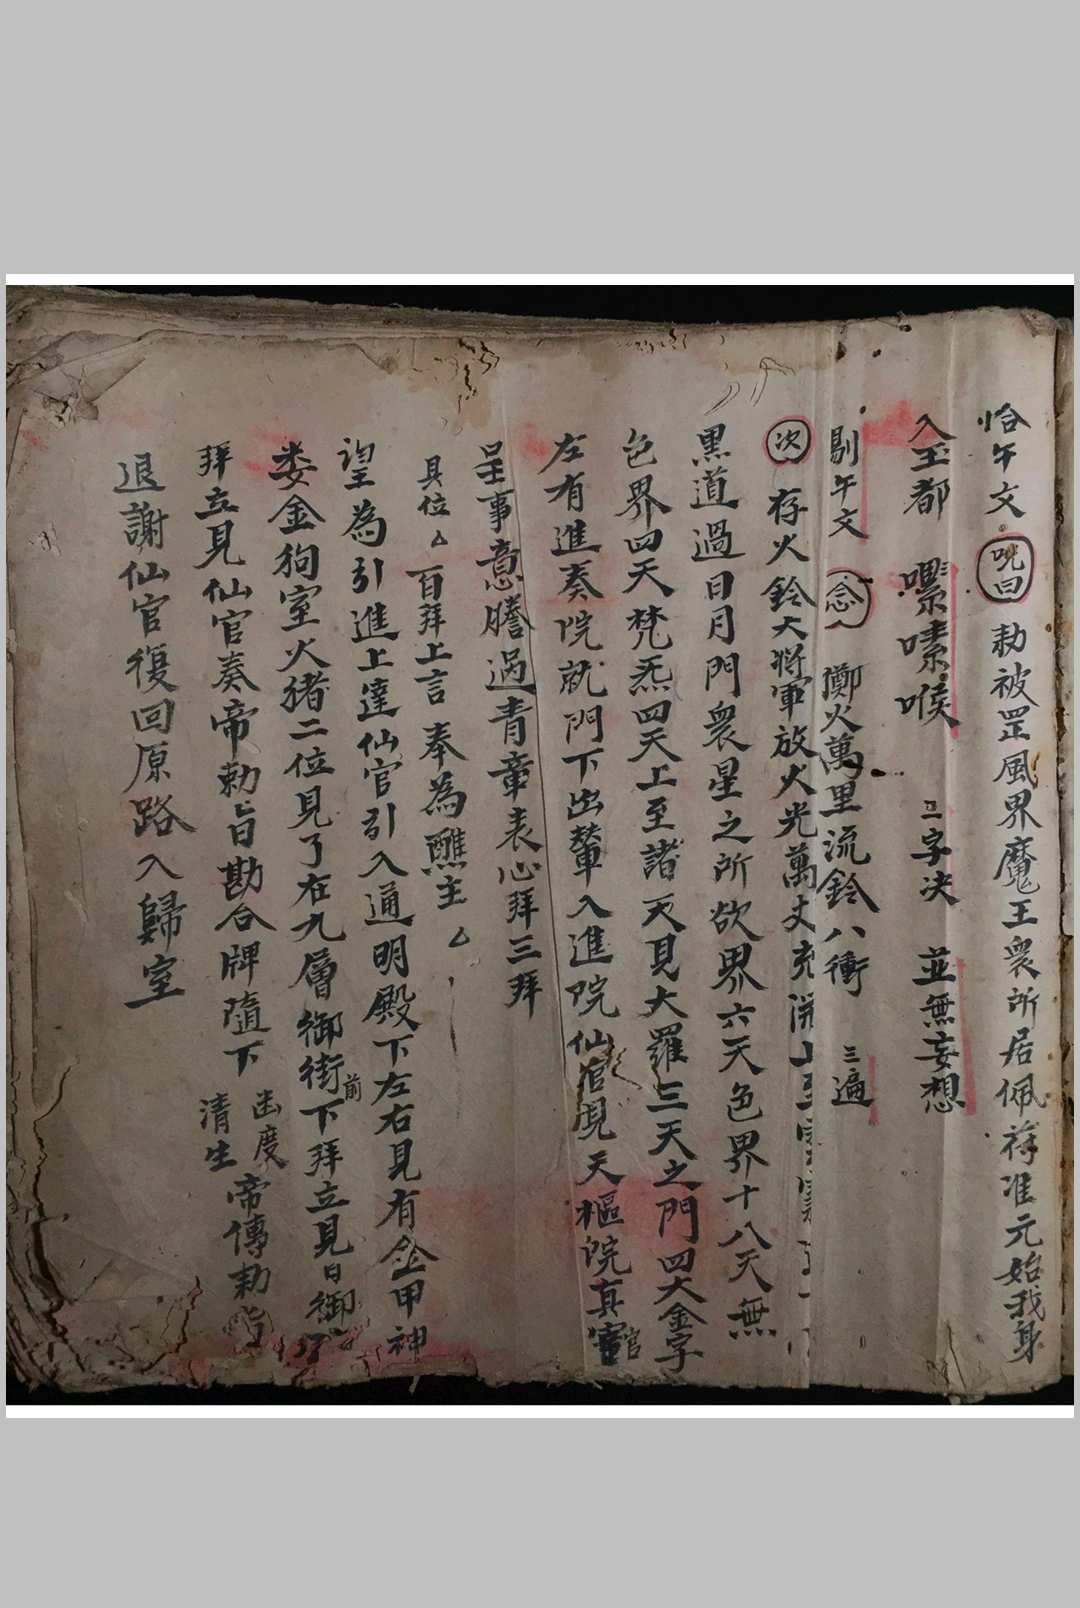 恰午文 咒曰 勅被罡風界魔王衆所居佩符准元始我身
入玉都 嚛嗉喉 二字决 並無妄想
剔午文 念 擲火萬里流鈴八衝 三遍
次 存火鈴大將軍放火光萬丈
黑道過日月門衆星之所欲界六天色界十八天無
色界四天梵炁四天上至諸天見大羅三天之門四大金字
左有進奏院就門下出輦入進院仙官見天樞院真官
呈事意謄過青章表心拜三拜
具位 百拜上言 奉為醮主
望為引進上達仙官引入通明殿下左右見有金甲神
娄金狗室火猪二位見了在九層御街前下拜立見御
拜立見仙官奏帝勅旨勘合牌隨下 幽度 清生 帝傳勅旨
退謝仙官復回原路入歸室